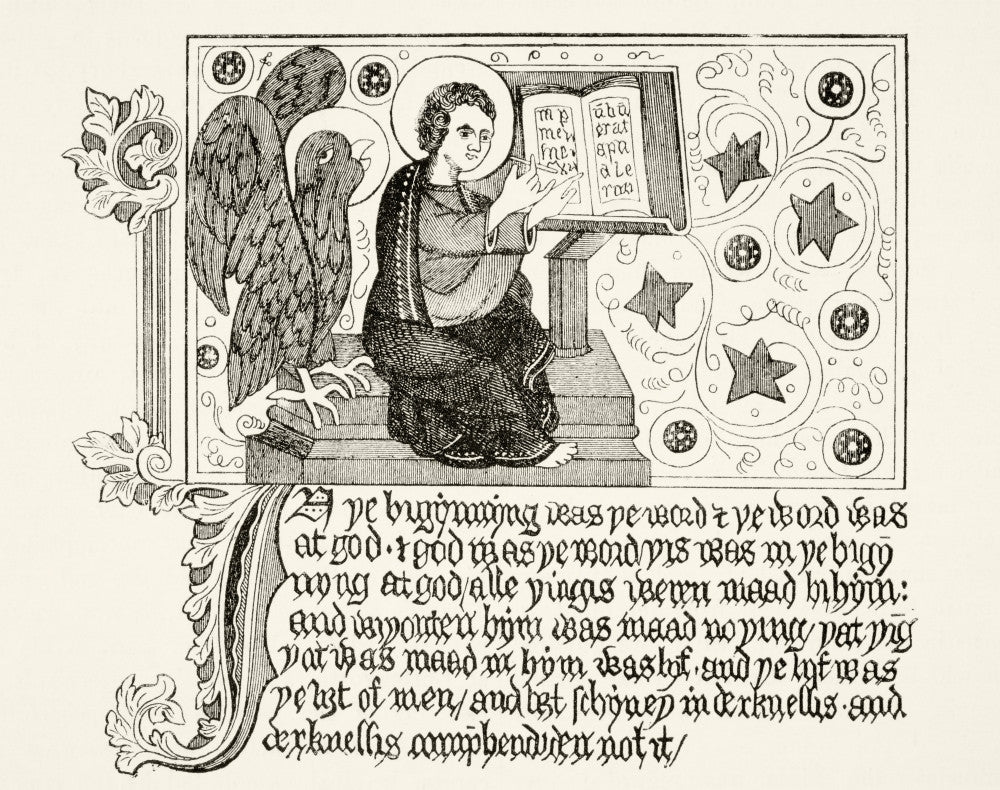 in p
erat
apu
IN ye bigynnyng was ye word & ye word was
at god · & god was ye word yis was in ye bigȳ
nyng at god / alle yingis weren maad bi hym:
and wyouten hym was maad no ying / yat yīg
yat was maad in hym was lyf · and ye lyf was
ye lȝt of men / and lȝt schyney in derknessis · and
derknessis comp̄hendiden not it /